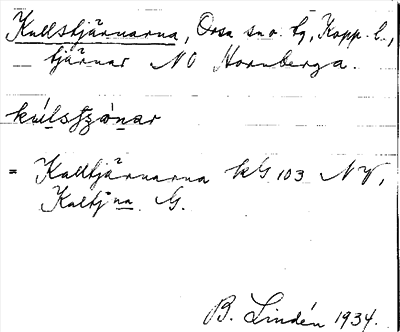 Kullstjärnarna, Orsa sn o. tg, Kopp. l.,
tjärnar NO Hornberga.
kúlstjǫ̀nar
= Kalltjärnarna kG 103 NV,
Kaltjna G.
B. Lindén 1934.